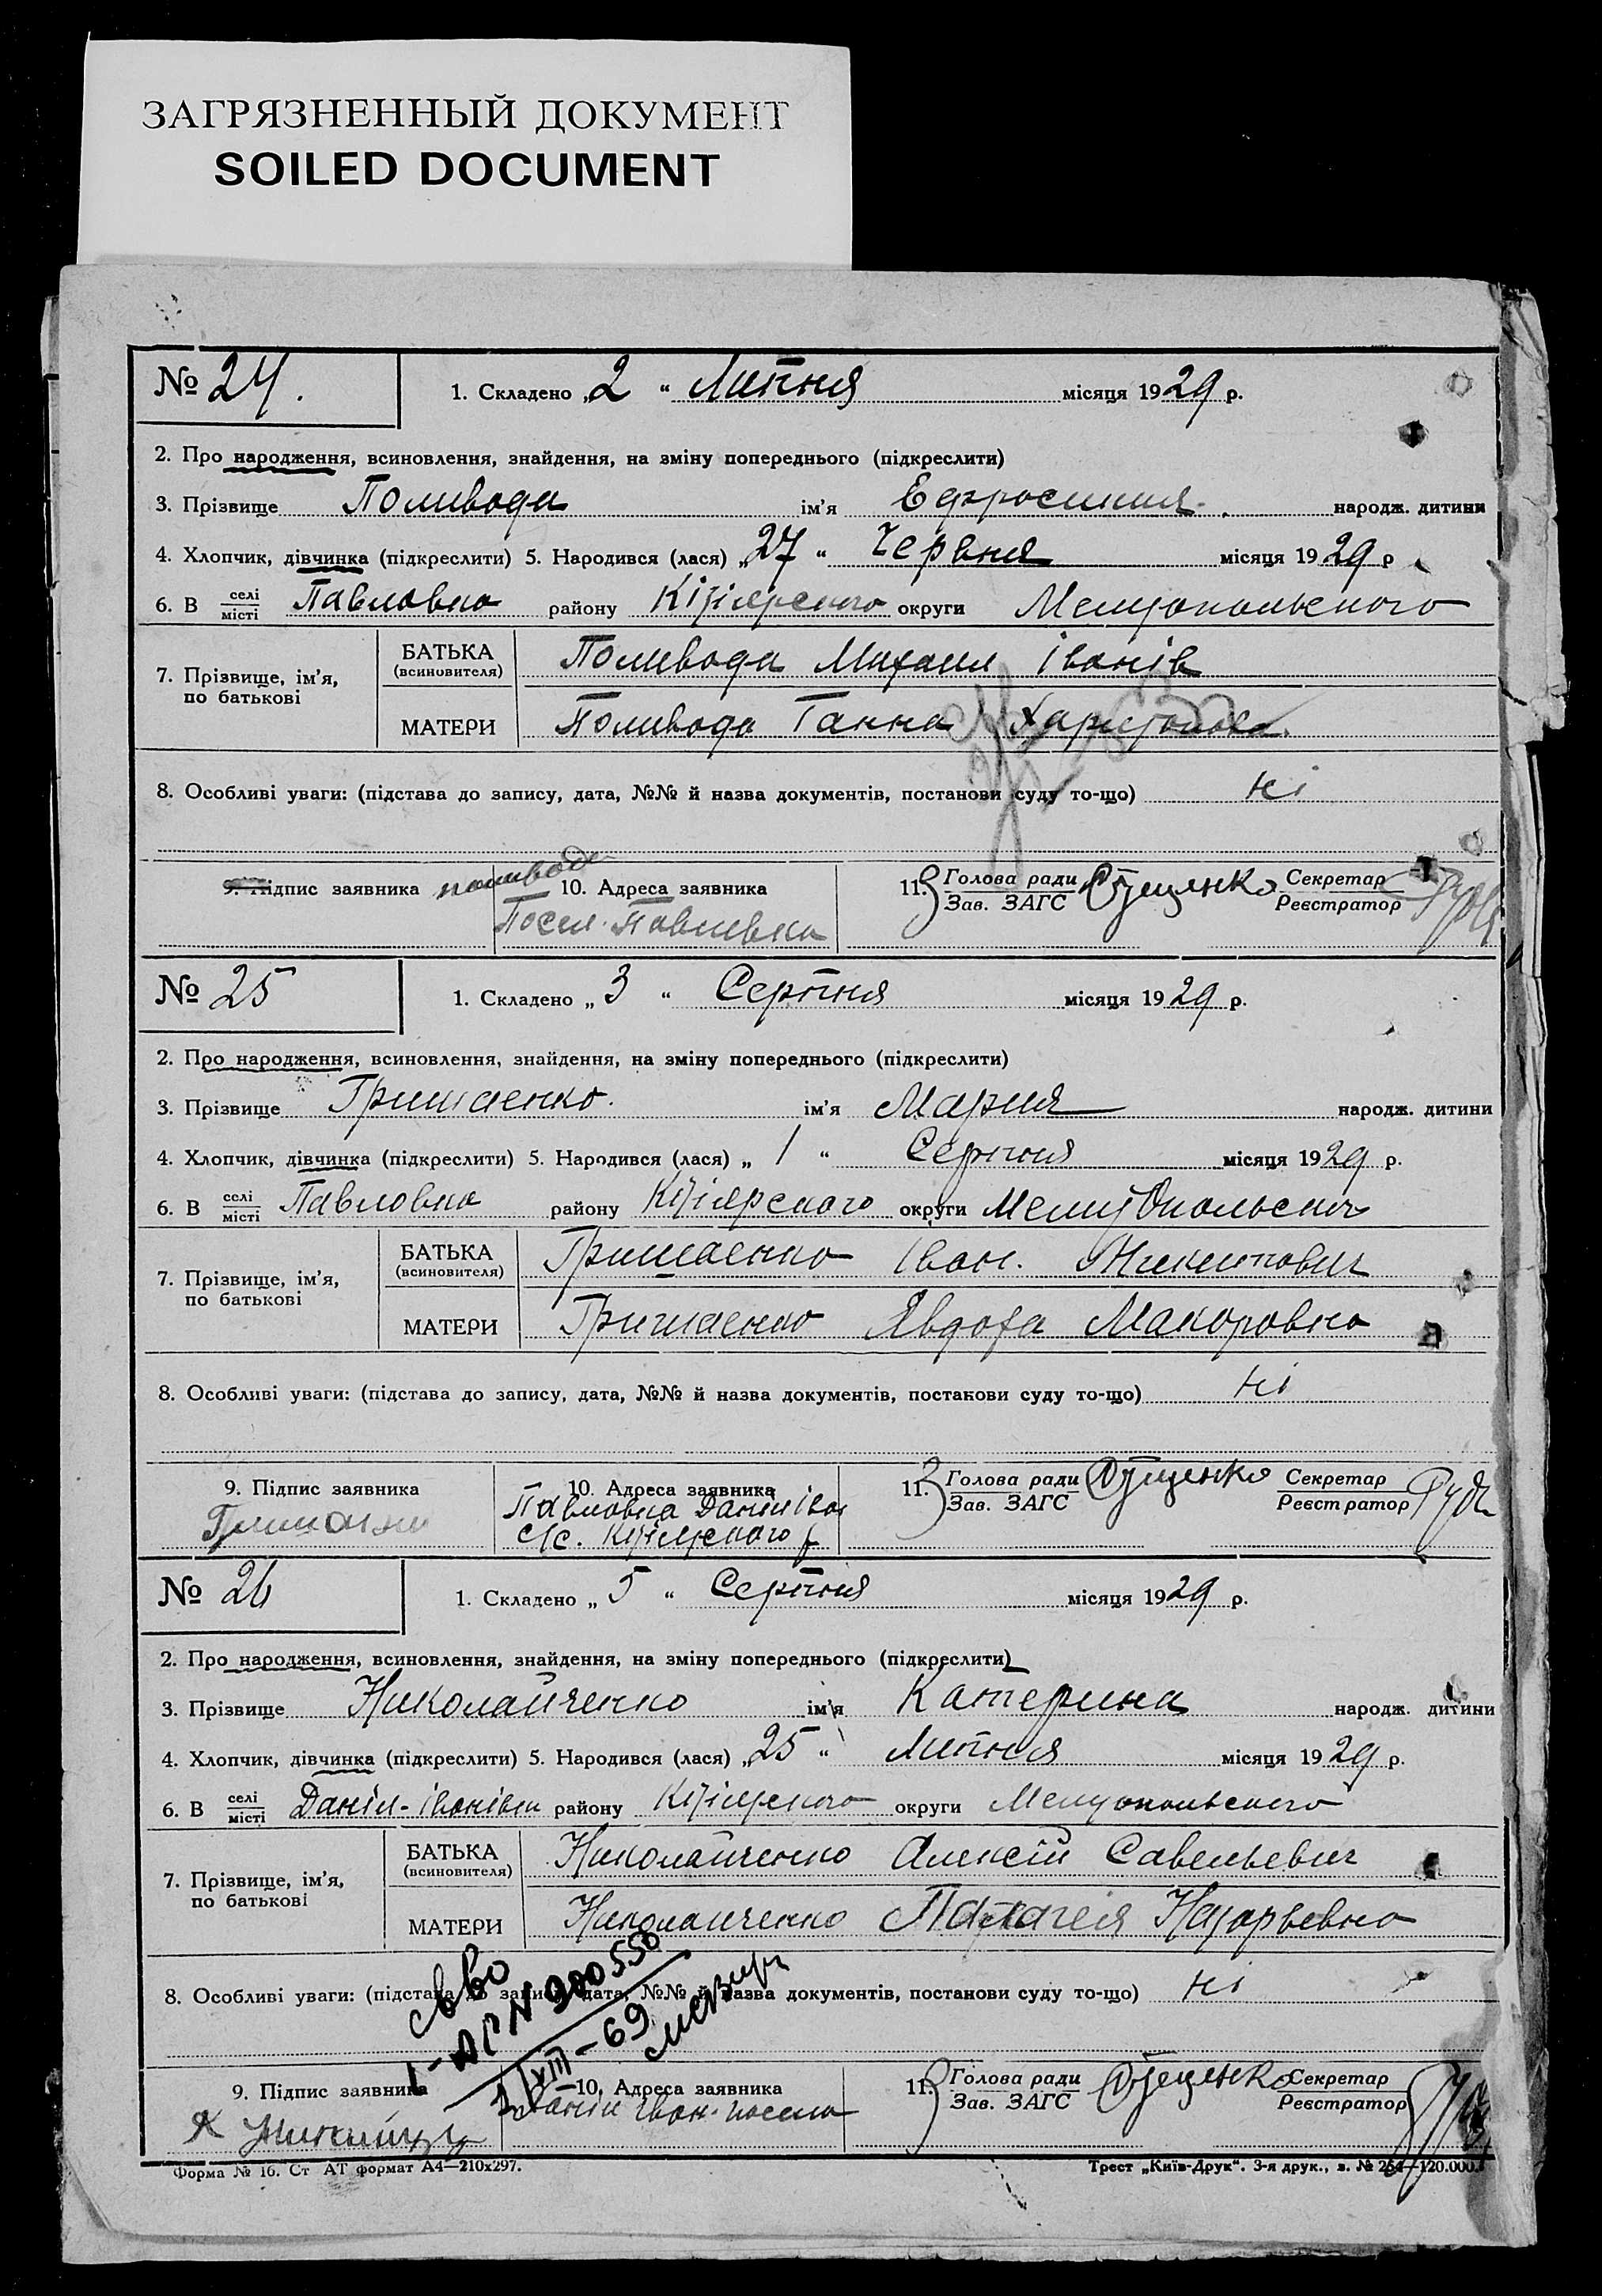 ЗАГРЯЗНЕННЫЙ ДОКУМЕНТ
SOILED DOCUMENT
№ 24. 1. Складено „2 “ Липня місяця 1929 р.
2. Про народження, всиновлення, знайдення, на зміну попереднього (підкреслити)
3. Прізвище Поливода ім’я Ефросиния народж. дитини
4. Хлопчик, дівчинка (підкреслити) 5. Народився (лася) „27 “ Червня місяця 1929 р
6. В селі/місті Павловка району Кізіярского округи Мелитопольского
7. Прізвище, ім’я, по батькові
БАТЬКА (всиновителя) Поливода Михаил Іванів
МАТЕРИ Поливода Ганна Харитонова.
8. Особливі уваги: (підстава до запису, дата, №№ й назва документів, постанови суду то-що) ні
9. Підпис заявника поливода 10. Адреса заявника 11. Голова ради Секретар
Зав. ЗАГС Реєстратор
Посел. Павлівка
№ 25 1. Складено „ 3 “ Серпня місяця 1929 р.
2. Про народження, всиновлення, знайдення, на зміну попереднього (підкреслити)
3. Прізвище Гришаенко. ім’я Мария народж. дитини
4. Хлопчик, дівчинка (підкреслити) 5. Народився (лася) „ 1 “ Серпня місяця 1929 р.
6. В селі/місті Павловка району Кізіярского округи Мелитопольског
7. Прізвище, ім’я, по батькові
БАТЬКА (всиновителя) Гришаенко Іван. Никитович
МАТЕРИ Гришаенко Явдоха Макаровна
8. Особливі уваги: (підстава до запису, дата, №№ й назва документів, постакови суду то-що) ні
9. Підпис заявника 10. Адреса заявника 11. Голова ради Секретар
Зав. ЗАГС Реєстратор
Павловка Даниліван
с/с. Кізіярского р
№ 26 1. Складено „ 5 “ Серпня місяця 1929 р.
2. Про народження, всиновлення, знайдення, на зміну попереднього (підкреслити)
3. Прізвище Николайченко ім’я Катерина народж. дитини
4. Хлопчик, дівчинка (підкреслити) 5. Народився (лася) „25 “ Липня місяця 1929 р.
6. В селі/місті Даніл-Іванівки району Кізіярского округи Мелитопольского
7. Прізвище, ім’я, по батькові
БАТЬКА (всиновителя) Николайченко Алексій Савельевич
МАТЕРИ Николайченко Палагея Назарьевна
8. Особливі уваги: (підстава до запису, дата, №№ й назва документів, постанови суду то-що) ні
св во
N 900550
VIII-69
9. Підпис заявника 10. Адреса заявника 11. Голова ради Секретар
Зав. ЗАГС Реєстратор
Даніл Іван. посела
Форма № 16. Ст АТ формат А4—210х297. Трест „Київ-Друк“. 3-я друк., з. № 254—120.000.